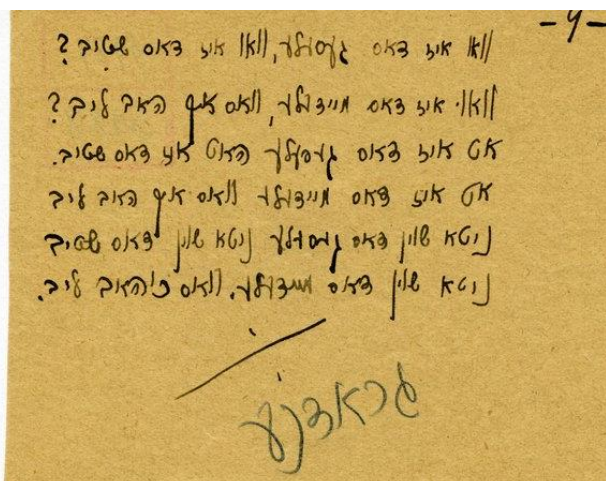 וואו איז דאס געסעלע, וואו איז דאס שטיב?
וואו איז דאס מיידעלע, וואס איך האב ליב?
אט איז דאס געסעלע האט איז דאס שטיב.
אט איז דאס מיידעלע וואס איך האב ליב
ניטא שוין דאס געסעלע ניטא שוין דאס שטיב
ניטא שוין דאס מיידעלע, וואס כ'האב ליב.
גראדנע